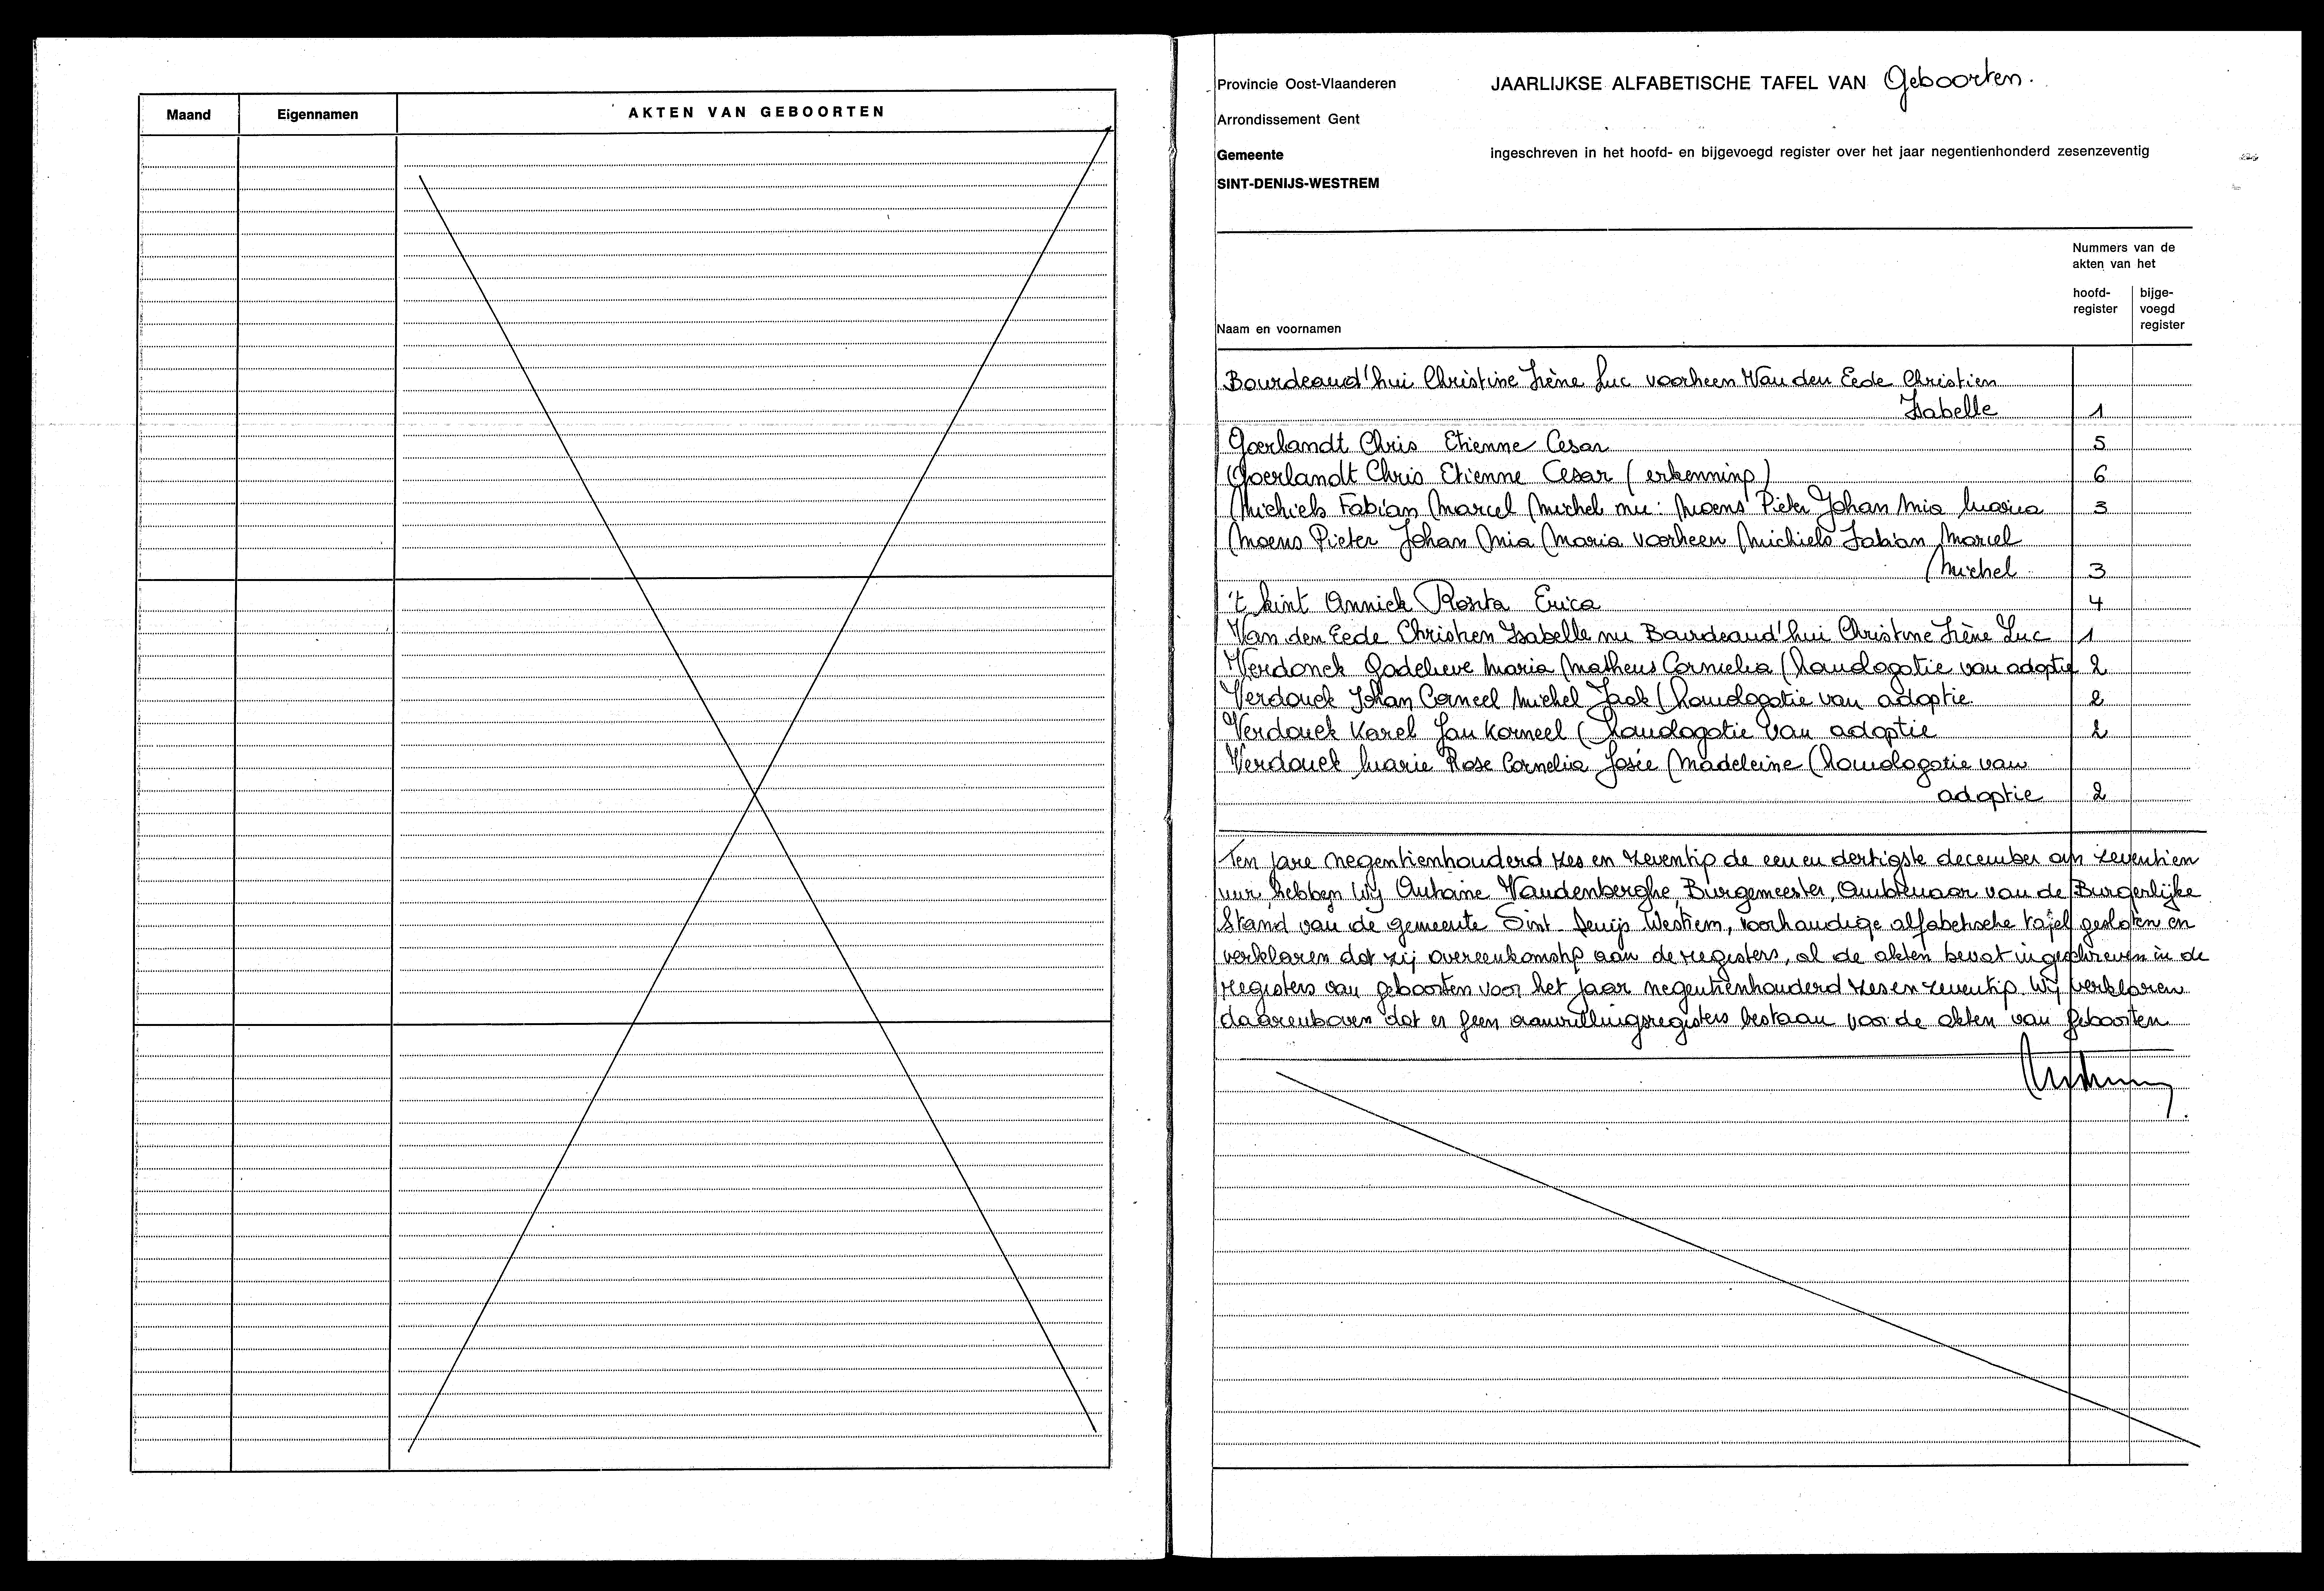 Maand Eigennamen AKTEN VAN GEBOORTEN
Provincie Oost-Vlaanderen JAARLIJKSE ALFABETISCHE TAFEL VAN Geboorten.
Arrondissement Gent
Gemeente ingeschreven in het hoofd- en bijgevoegd register over het jaar negentienhonderd zesenzeventig
SINT-DENIJS-WESTREM
Nummers van de
akten van het
hoofd- bijge-
register voegd
Naam en voornamen register
Bourdeaud'hui Christine Irène Luc voorheen Van den Eede Christien
Isabelle 1
Goerlandt Chris Etienne Cesar 5
Goerlandt Chris Etienne Cesar (erkenning) 6
Michiels Fabian Marcel Michel nu: Moens Pieter Johan Mia Maria 3
Moens Pieter Johan Mia Maria voorheen Michiels Fabian Marcel
Michel 3
't kint Annick Rosita Erica 4
Van den Eede Christien Isabelle nu Bourdeaud'hui Christine Irène Luc 1
Verdonck Godelieve Maria Matheus Cornelia (homologatie van adoptie 2
Verdonck Johan Corneel Michel Jack (homologatie van adoptie 2
Verdonck Karel Jan Korneel (homologatie van adoptie 2
Verdonck Marie Rose Cornelia Josée Madeleine (homologatie van
adoptie 2
Ten jare negentienhonderd zes en zeventig de een en dertigste december om zeventien
uur hebben wij Antoine Vandenberghe, Burgemeester, Ambtenaar van de Burgerlijke
Stand van de gemeente Sint Denijs Westrem, voorhandige alfabetische tafel gesloten en
verklaren dat zij overeenkomstig aan de registers, al de akten bevat ingeschreven in de
registers van geboorten voor het jaar negentienhonderd zes en zeventig. Wij verklaren
daarenboven dat er geen aanvullingsregisters bestaan voor de akten van geboorten